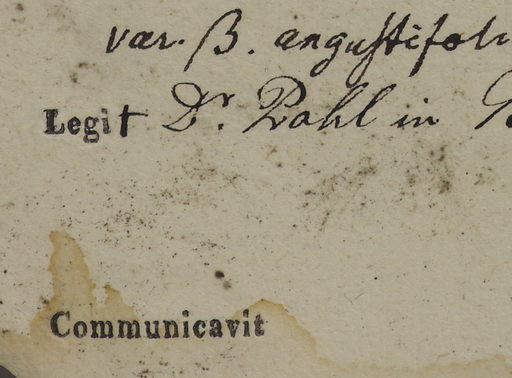 var. β. angustifoli
Legit Dr. Prahl in
Communicavit